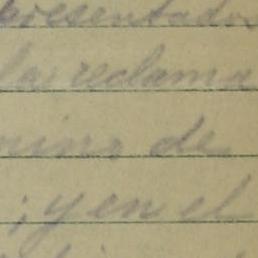 presentados
las reclama
mino de
; y en el